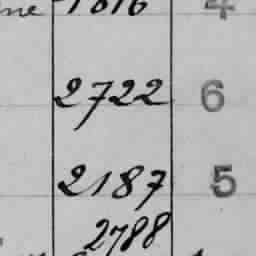 ne 1816 4
2722 6
2187 5
2788